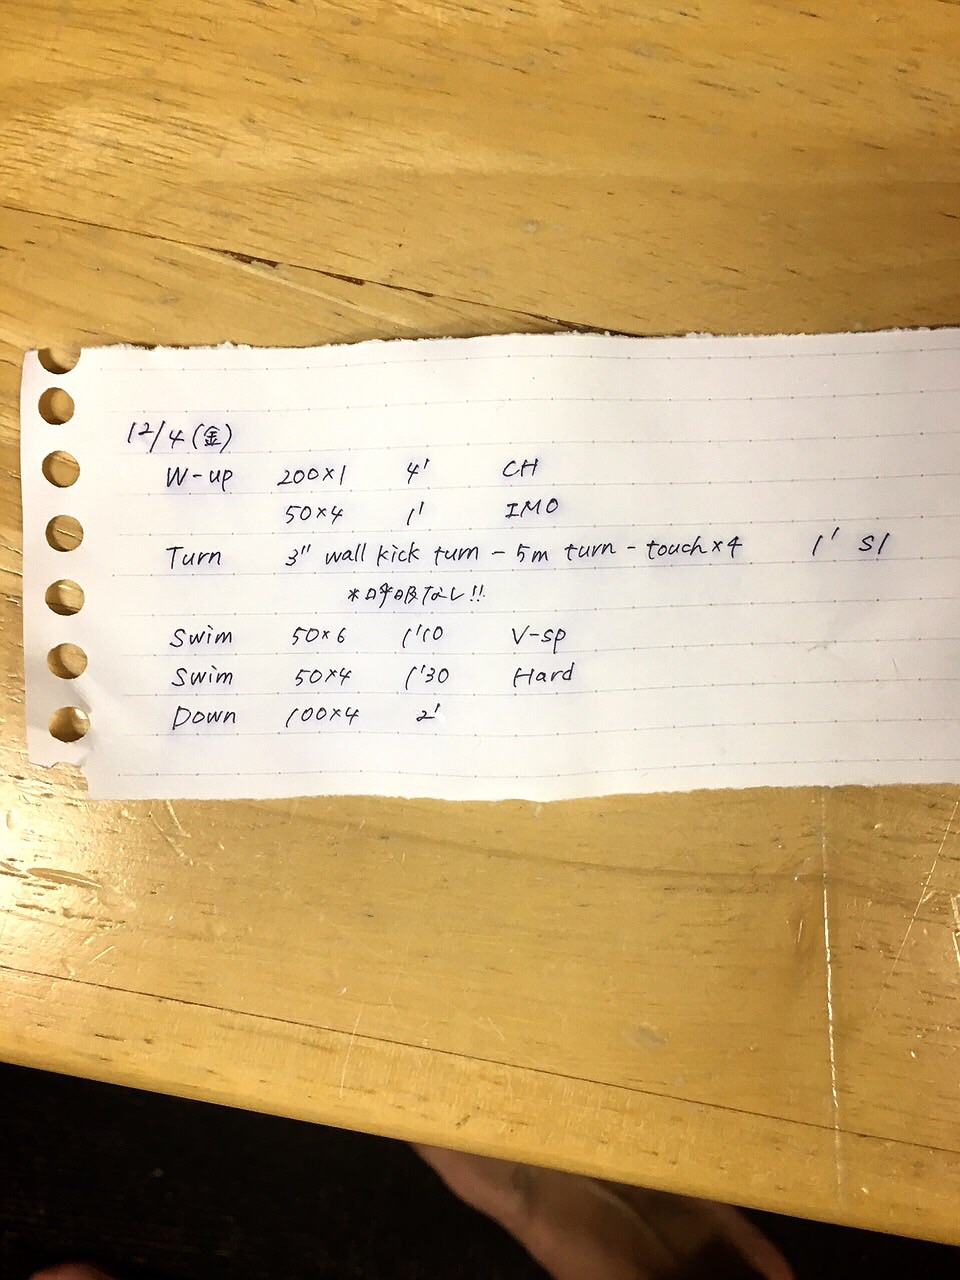 12/4(金)
W-up 200×1 4' CH
50×4 1' IMO
Turn 3" wall kick turn - 5m turn - touch×4 1' S1
*呼吸なし!!
Swim 50×6 1'10 V-sp
Swim 50×4 1'30 Hard
Down 100×4 2'